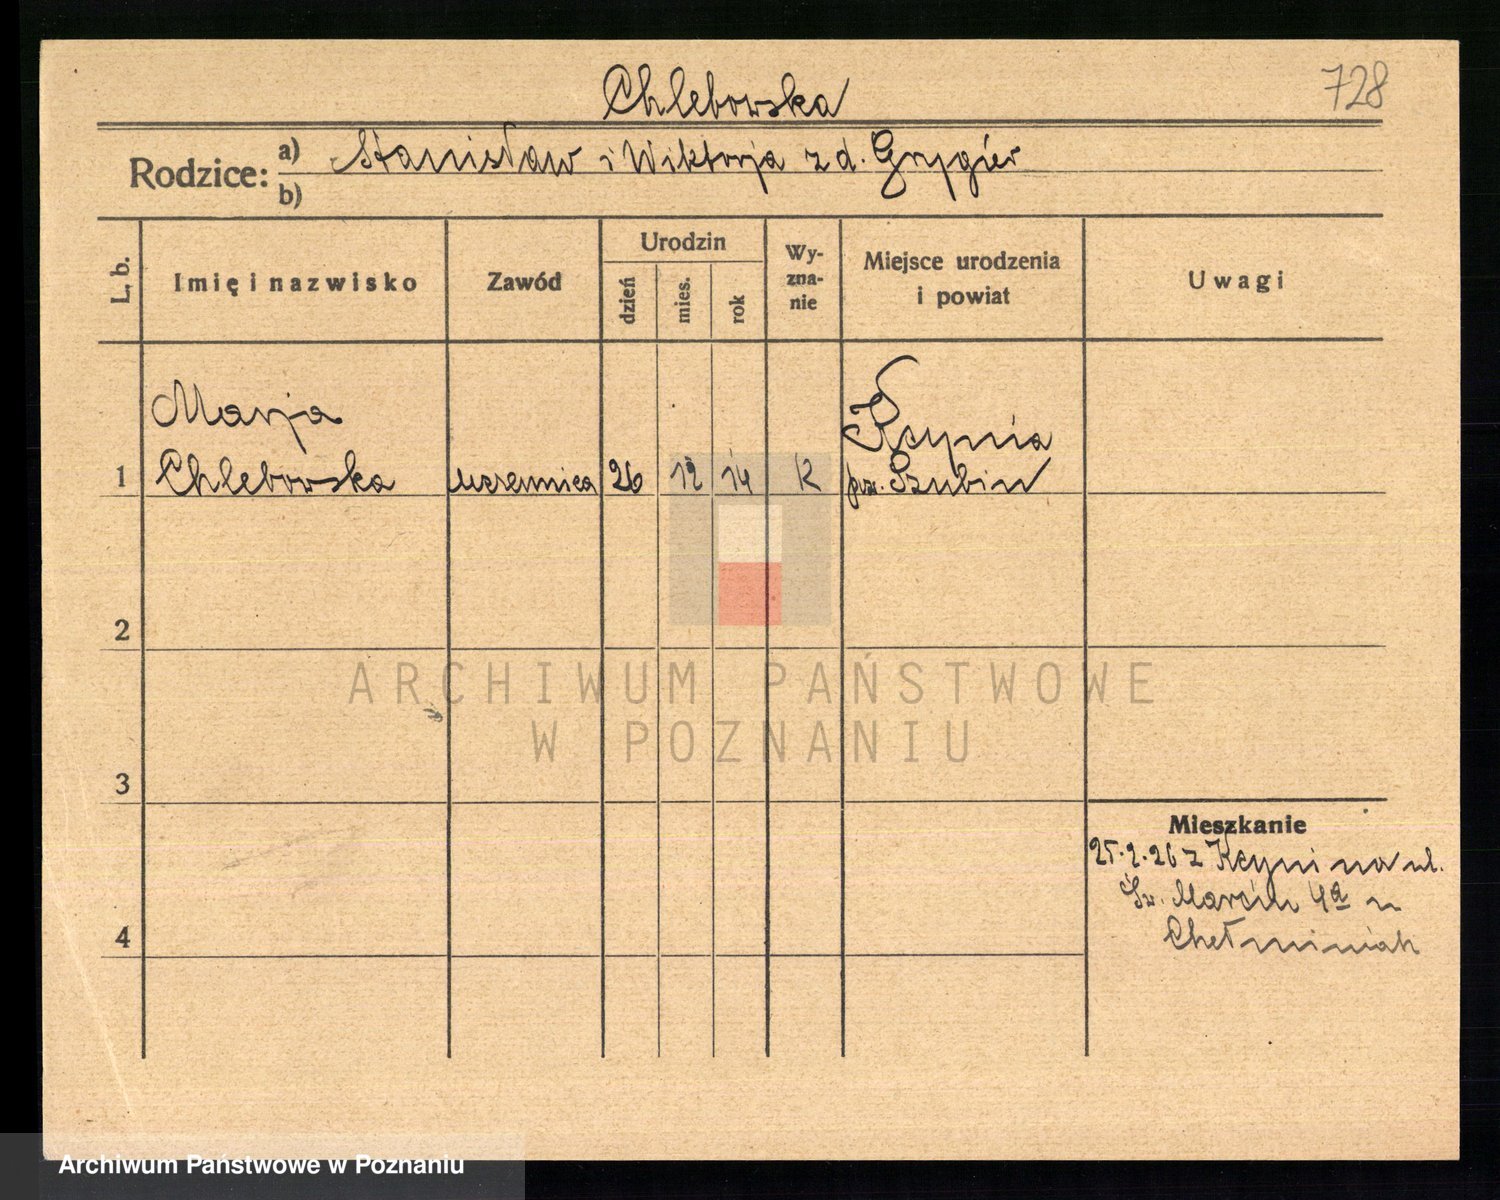 Chlebowska
728
Rodzice:
a) Stanisław i Wiktorja z d. Grygier
b)
L. b.
Imię i nazwisko
Zawód
Urodzin
dzień
mies.
rok
Wy-
zna-
nie
Miejsce urodzenia
i powiat
Uwagi
1
Marja
Chlebowska
uczennica
26
12
14
K
Kcynia
pow. Szubin
2
3
4
Mieszkanie
25.2.26 z Kcyni na ul.
Św. Marcin 4a u
Chełminiak
ARCHIWUM PAŃSTWOWE
W POZNANIU
Archiwum Państwowe w Poznaniu